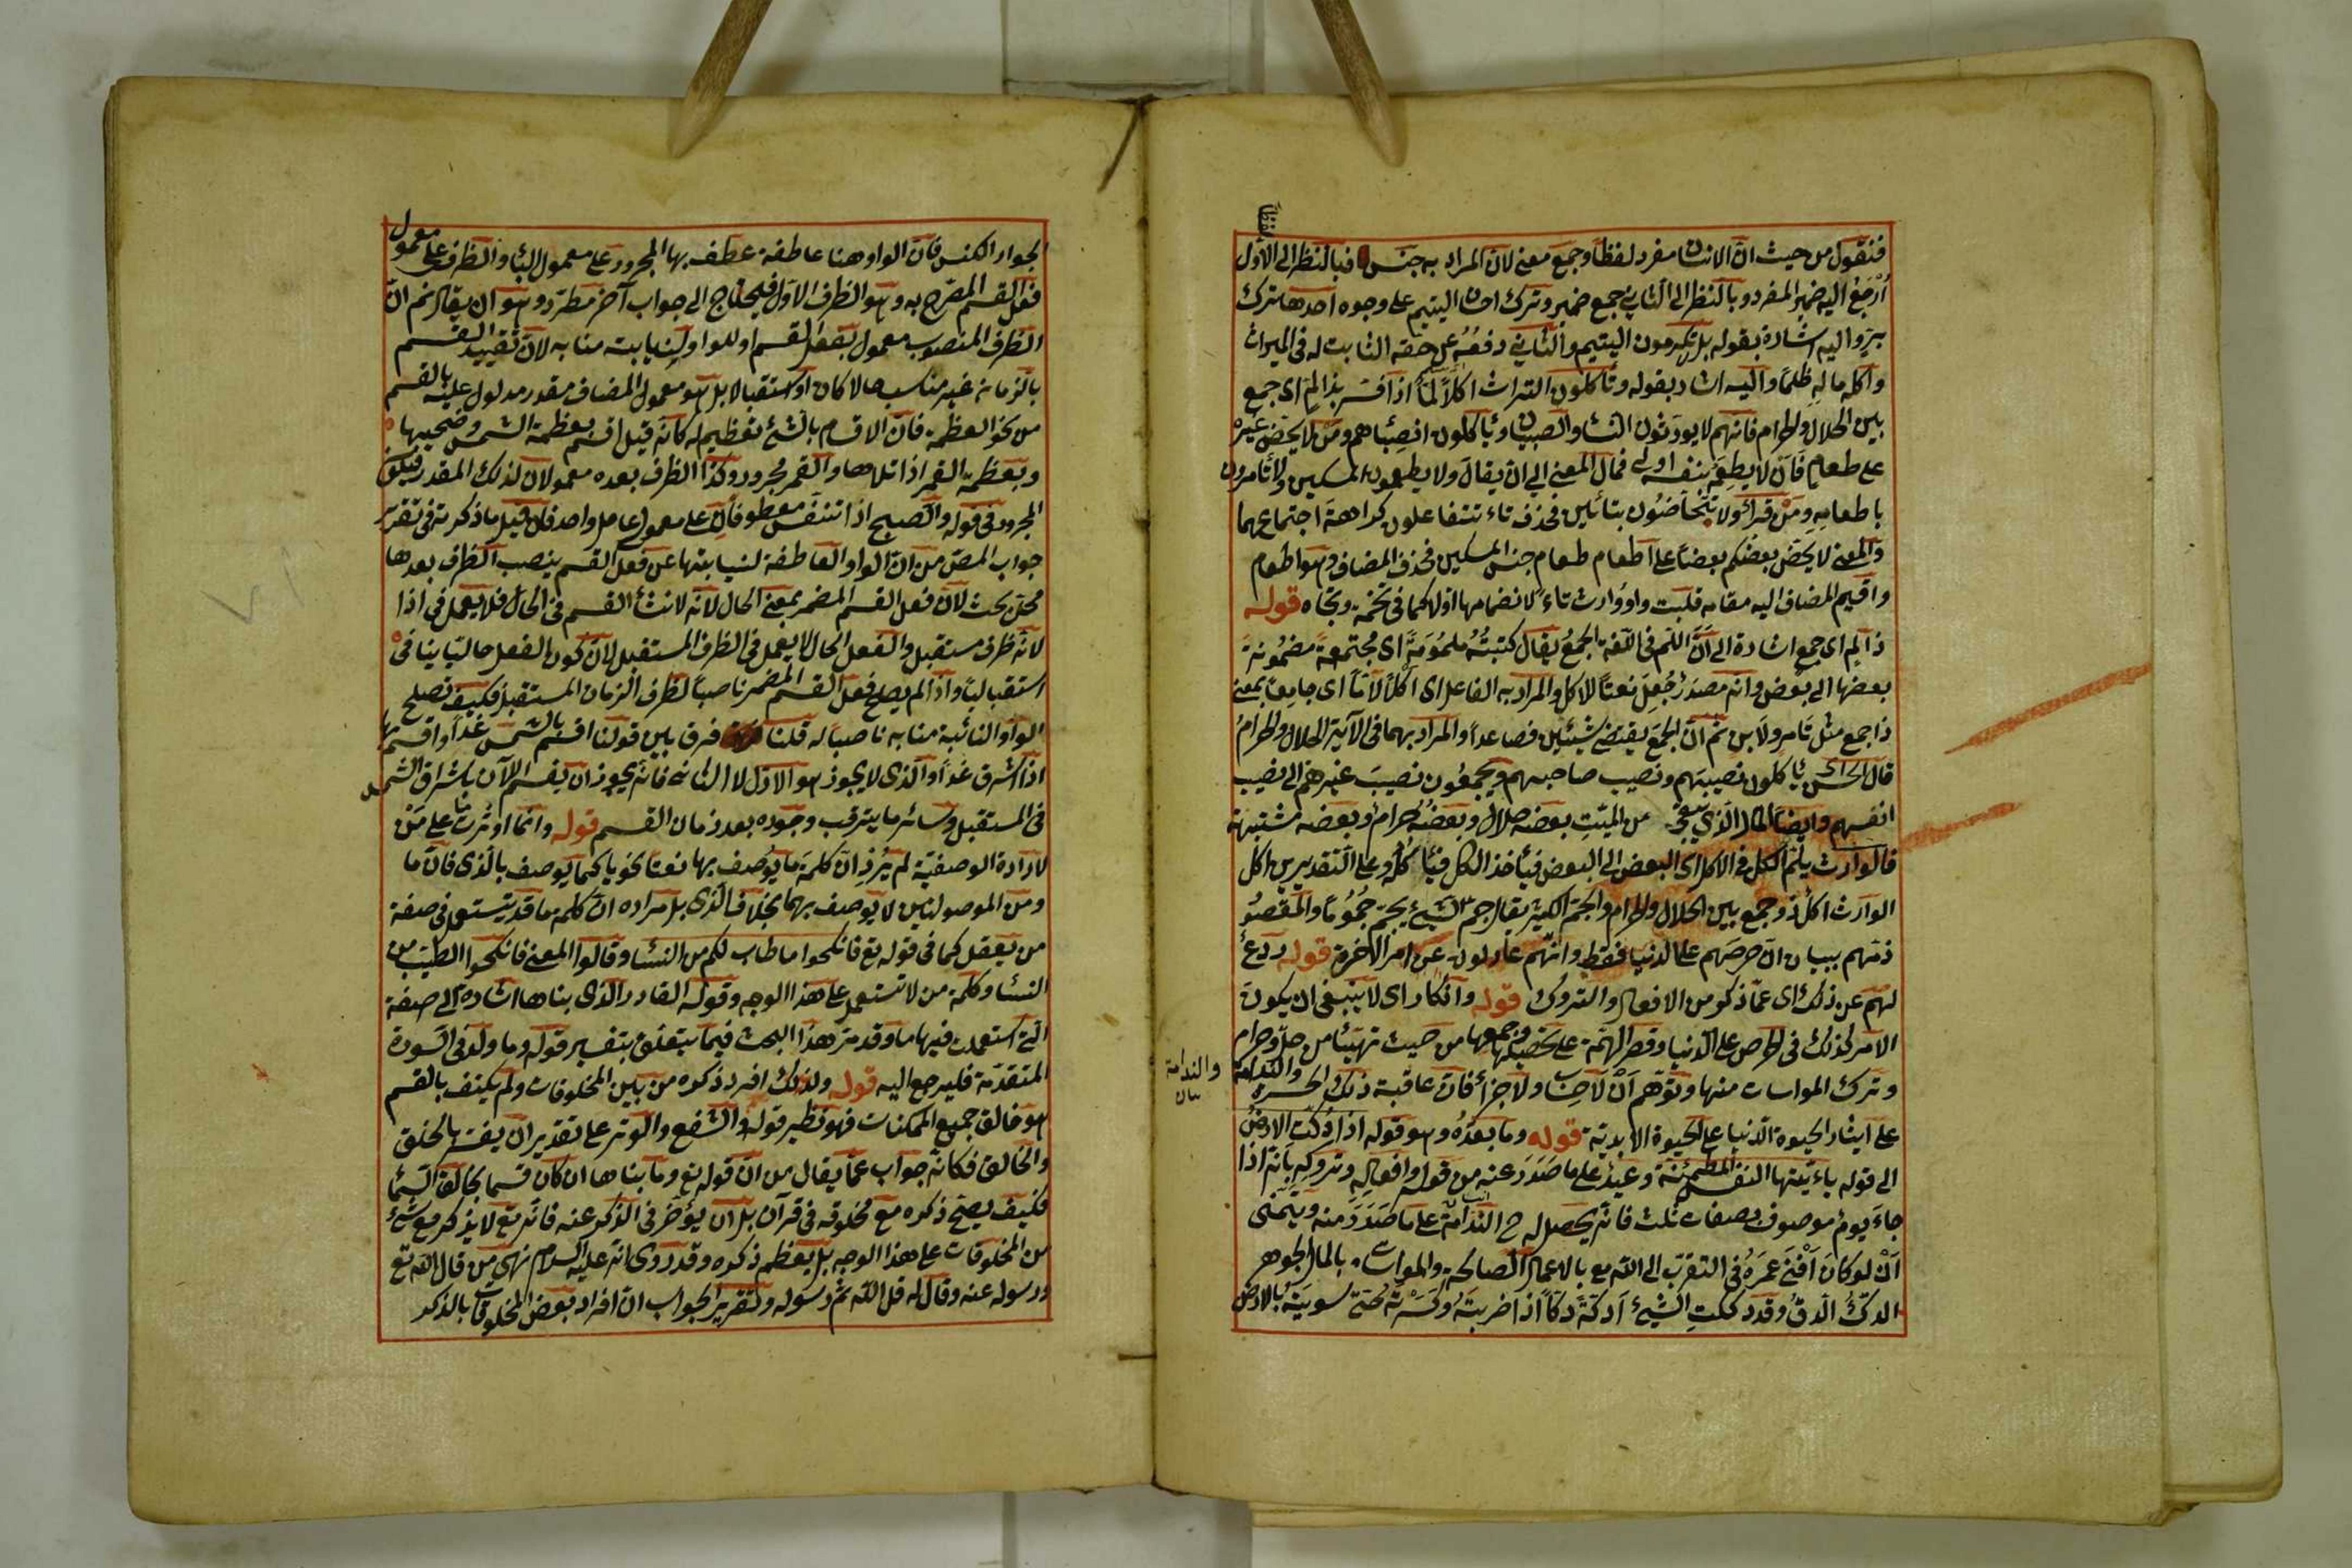 فنقول من حيث ان الانسان مفرد لفظا وجمع معنى لان المراد به جنس فبالنظر الى الاول
أرجع اليه ضمير المفرد وبالنظر الى الثانى جمع ضميره وترك احسان اليتيم على وجوه احدها ترك
بره واليه اشارة بقوله بل لا تكرمون اليتيم والثانى دفعه عن حقه الثابت له فى الميراث
واكله ماله ظلما واليه اشار بقوله وتأكلون التراث اكلا لما اذا فسر بذا لم اى جمع
بين الحلال والحرام فانهم لا يورثون النساء والصبيان ويأكلون انصباءهم ومن لا يحض غيره
على طعام فان لا يطعمه بنفسه اولى فمال المعنى الى ان يقال ولا يطعمون المسكين ولا تأمرون
باطعامه ومن قرأ ولا تتحاضون بتائين فحذف تاء تتفاعلون كراهة اجتماعهما
والمعنى لا يحض بعضكم بعضا على اطعام طعام جنس المسكين فحذف المضاف وهو اطعام
واقيم المضاف اليه مقامه قلبت واو وراث تاء لانضمامها اولا كما فى تخمة وتجاه قوله
ذا لم اى جمع اشارة الى ان اللم فى اللغة الجمع يقال كتيبة ملمومة اى مجتمعة مضمومة
بعضها الى بعض وانه مصدر جعل نعتا للاكل والمراد به الفاعل اى اكلا لاما اى جامعا بمعنى
ذا جمع مثل تامر ولابن ثم ان الجمع يقتضى شيئين فصاعدا والمراد بهما فى الآية الحلال والحرام
قال الحسن يأكلون نصيبهم ونصيب صاحبهم ويجمعون نصيب غيرهم الى نصيب
انفسهم وايضا المال الذى يبقى من الميت بعضه حلال وبعضه حرام وبعضه مشتبهة
فالوارث يلم الكل فى الاكل اى البعض الى البعض فيأخذ الكل فيأكله وعلى التقديرين اكل
الوارث اكل ذو جمع بين الحلال والحرام والجم الكثير يقال جم الشيء يجم جموما والمقصود
ذمهم ببيان ان حرصهم على الدنيا فقط وانهم عادلون عن امر الآخرة قوله ردع
لهم عن ذلك اى عما ذكر من الافعال والتروك قوله وانكار اى لا ينبغى ان يكون
الامر كذلك فى الحرص على الدنيا وقصر الهمة على تحصيلها وجمعها من حيث تهيئا من حل وحرام
وترك المواسات منها وتوهم ان لا حساب ولا جزاء فان عاقبة ذلك الحسرة والندامة
والندامة
بيان
على ايثار الحيوة الدنيا على الحيوة الابدية قوله وما بعده وهو قوله اذا دكت الارض
الى قوله يا ءيتها النفس المطمئنة وعيد على ما صدر عنه من قوله وافعاله وتروكه بانه اذا
جاء يوم موصوف بصفات ثلث فانه يحصل له ح الندامة على ما صدر منه ويتمنى
ان لو كان أفنى عمره فى التقرب الى الله تع بالاعمال الصالحة والمواساة بالمال الجوهر
الدك الدق وقد دككت الشيء أدكه دكا اذا ضربته وكسرته حتى سويته بالارض
الجوار الكنس فان الواو هنا عاطفة عطف بها المجرور على معمول الباء والظرف على معمول
فعل القسم المصرح به وهو الظرف الاول فيحتاج الى جواب آخر مطرد وهو ان يقال ثم ان
الظرف المنصوب معمول بفعل القسم او للواو لنيابته منابه لان تقييد القسم
بالزمان غير مناسب حالا كان او استقبالا بل هو معمول المضاف مقدر مدلول عليه بالقسم
من نحو العظمة فان الاقسام بالشئ تعظيم له كانه قيل اقسم بعظمة الشمس وضحيها
وبعظمة القمر اذا تلاها والقمر مجرور وكذا الظرف بعده معمولان لذلك المقدر فيكون
المجرور فى قوله والصبح اذا تنفس معطوفان على معمول عامل واحد فان قيل ما ذكرته فى تقرير
جواب المص من ان الواو العاطفة لنيابتها عن فعل القسم ينصب الظرف بعدها
محل بحث لان فعل القسم المضمر بمعنى الحال لانه لانشاء القسم فى الحال فلا يعمل فى اذا
لانه ظرف مستقبل والفعل الحال لا يعمل فى الظرف المستقبل لان كون الفعل حاليا ينافى
استقباليا واذا لم يصلح فعل القسم المضمر ناصبا لظرف الزمان المستقبل فكيف تصلح
الواو النائبة منابه ناصبا له قلنا فرق بين قولنا اقسم بالشمس غدا واقسم بها
اذا اشرق غدا والذى لا يجوز هو الاول لا الثانى فانه يجوز ان يقسم الآن باشراق الشمس
فى المستقبل وسائر ما يترقب وجوده بعد زمان القسم قوله وانما اوثرت ما على من
لارادة الوصفية لم يرد ان كلمة ما يوصف بها نعتا نحويا كما يوصف بالذى فان ما
ومن الموصولتين لا يوصف بهما بخلاف الذى بل مراده ان كلمة ما قد يستعمل فى صفة
من يعقل كما فى قوله تع فانكحوا ما طاب لكم من النساء وقالوا المعنى فانكحوا الطيب من
النساء وكلمة من لا تستعمل على هذا الوجه وقوله القادر الذى بناها اشارة الى صفة
التى استعملت فيها ما وقد مر هذا البحث فيما يتعلق بتفسير قوله وما ولد فى السورة
المتقدمة فليرجع اليه قوله ولذلك افرد ذكره من بين المخلوقات ولم يكتف بالقسم
هو خالق جميع الممكنات فهو نظير قوله والشفع والوتر على تقدير ان يفسر بالخلق
والخالق فكانه جواب عما يقال من ان قوله تع وما بناها ان كان قسما بخالق السماء
فكيف يصح ذكره مع مخلوقه فى قرآن بل ان يؤخر فى الذكر عنه فانه تع لا يذكر مع شئ
من المخلوقات على هذا الوجه بل يعظم ذكره وقد روى انه عليه السلام نهى من قال الله تع
ورسوله عنه وقال له قل الله ثم رسوله وتقرير الجواب ان افراد بعض المخلوقات بالذكر